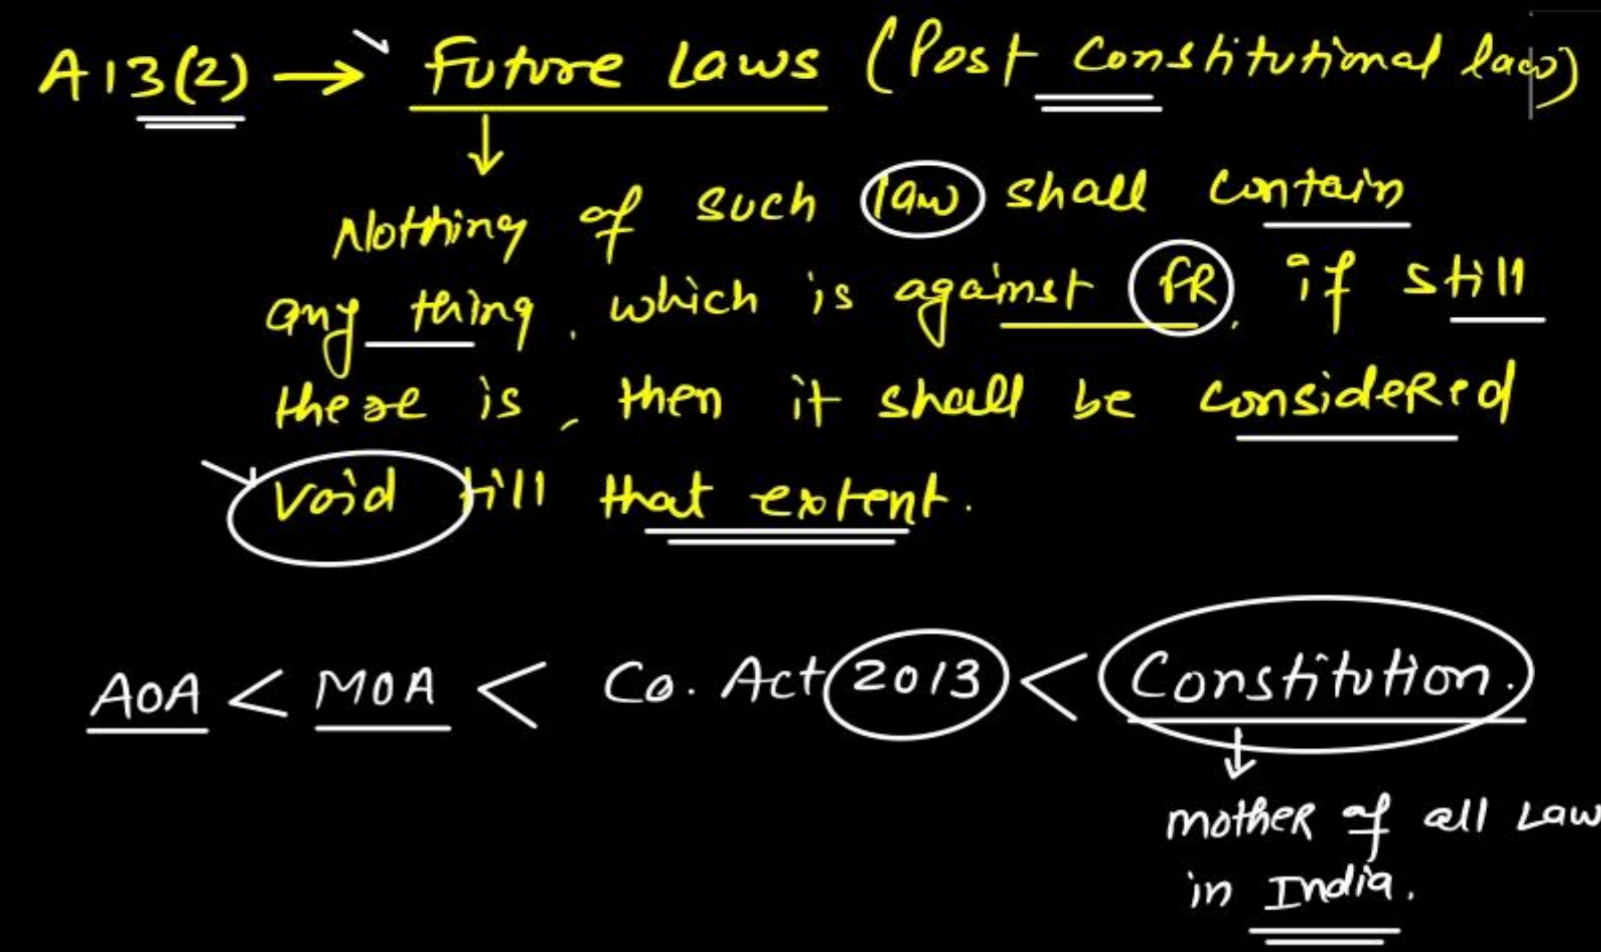 A13(2) → Future Laws (Post Constitutional law)
Nothing of such law shall contain
any thing, which is against FR, if still
there is, then it shall be considered
void till that extent.
AOA < MOA < Co. Act 2013 < Constitution.
mother of all Law
in India.